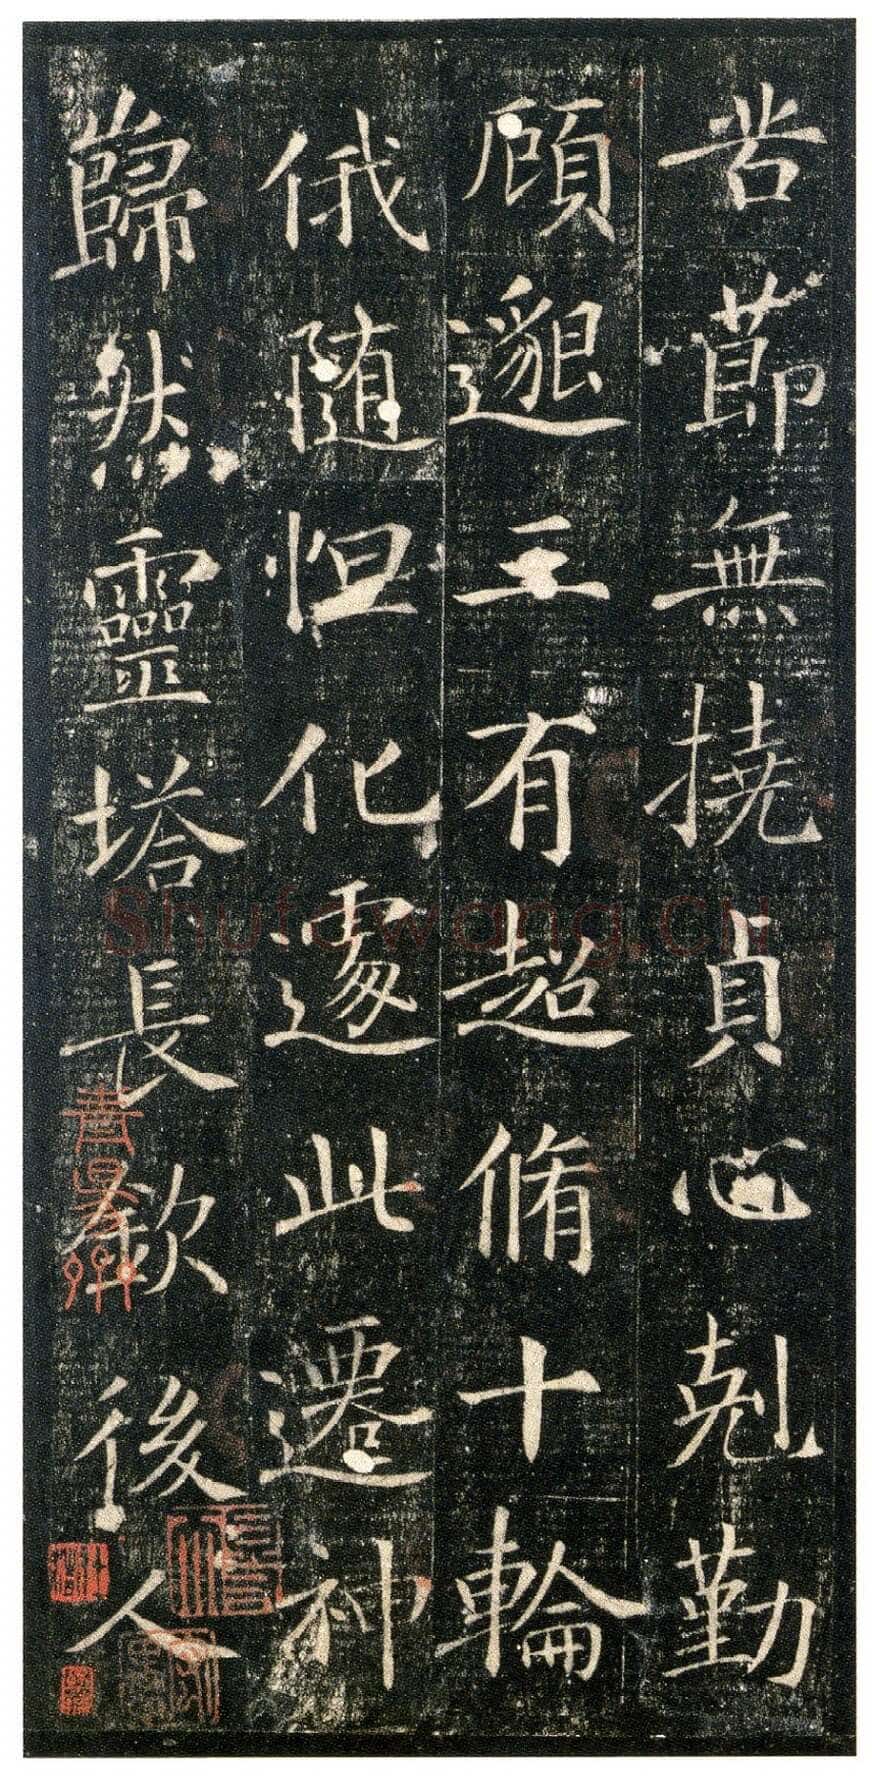 苦節無撓貞心剋勤
顧邈三有超脩十輪
俄随怛化遽此遷神
巋然靈塔長欽後人
Shufawang.cn